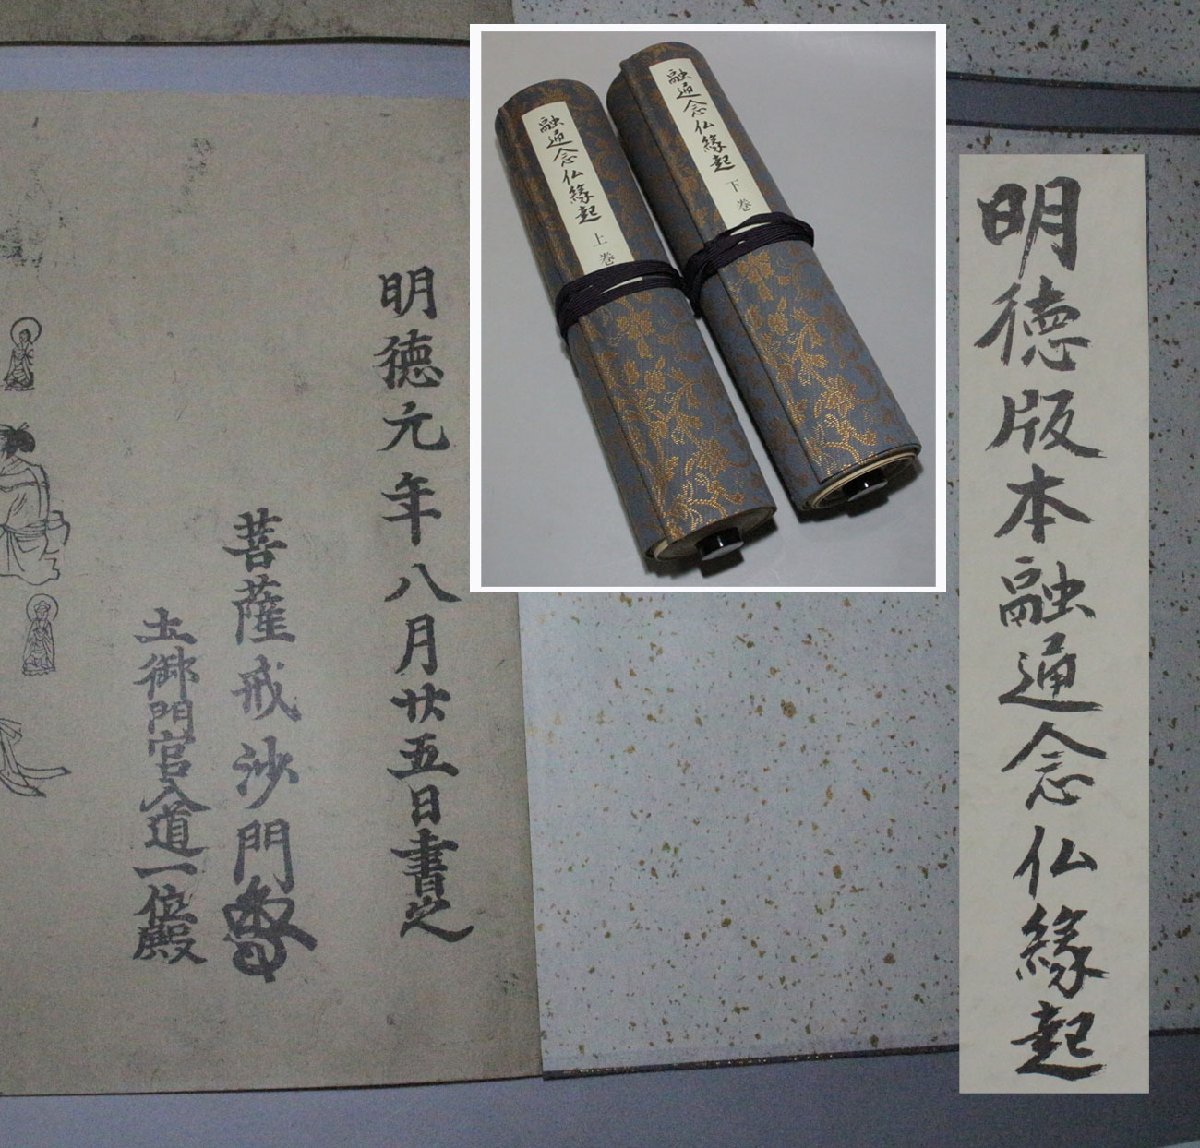 明徳版本融通念仏縁起
融通念仏縁起 下巻
融通念仏縁起 上巻
明徳元年八月廿五日書之
菩薩戒沙門
土御門官入道一位殿